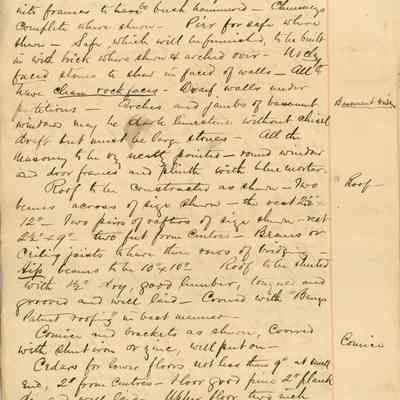 nite frames to have bush hammered – Chimneys
Complete where shown – Pier for safe where
shown – Safe, which will be furnished, to be built
in with brick where shown & arched over – Rocky
faced stones to show in faced of walls – All to
have clean rock faces – Dwarf walls under
partitions – Arches and jambs of basement
windows may be limestone without chisel
draft but must be large stones – All the
Masonry to be neatly pointed – round window
and door frames and plinth with blue mortar.
Roof to be constructed as shown – Two
beams across of size shown – the rest 2½ –
12" – Two pairs of rafters of size shown – rest
2½ × 9" two feet from centres – Braces or
Ceiling joists to have three rows of bridging –
Hip beams to be 10 × 10" Roof to be sheeted
with 1½ dry, good lumber, tongued and
grooved and well laid – Covered with
Patent roofing in best manner –
Cornice and brackets as shown, Covered
with sheet iron or zinc, well put on –
Cedars for lower floors not less than 9" at small
end, 2' from centres – Floor good pine 2" plank
and well laid – Upper floor two inch
Basement
Roof –
Cornice